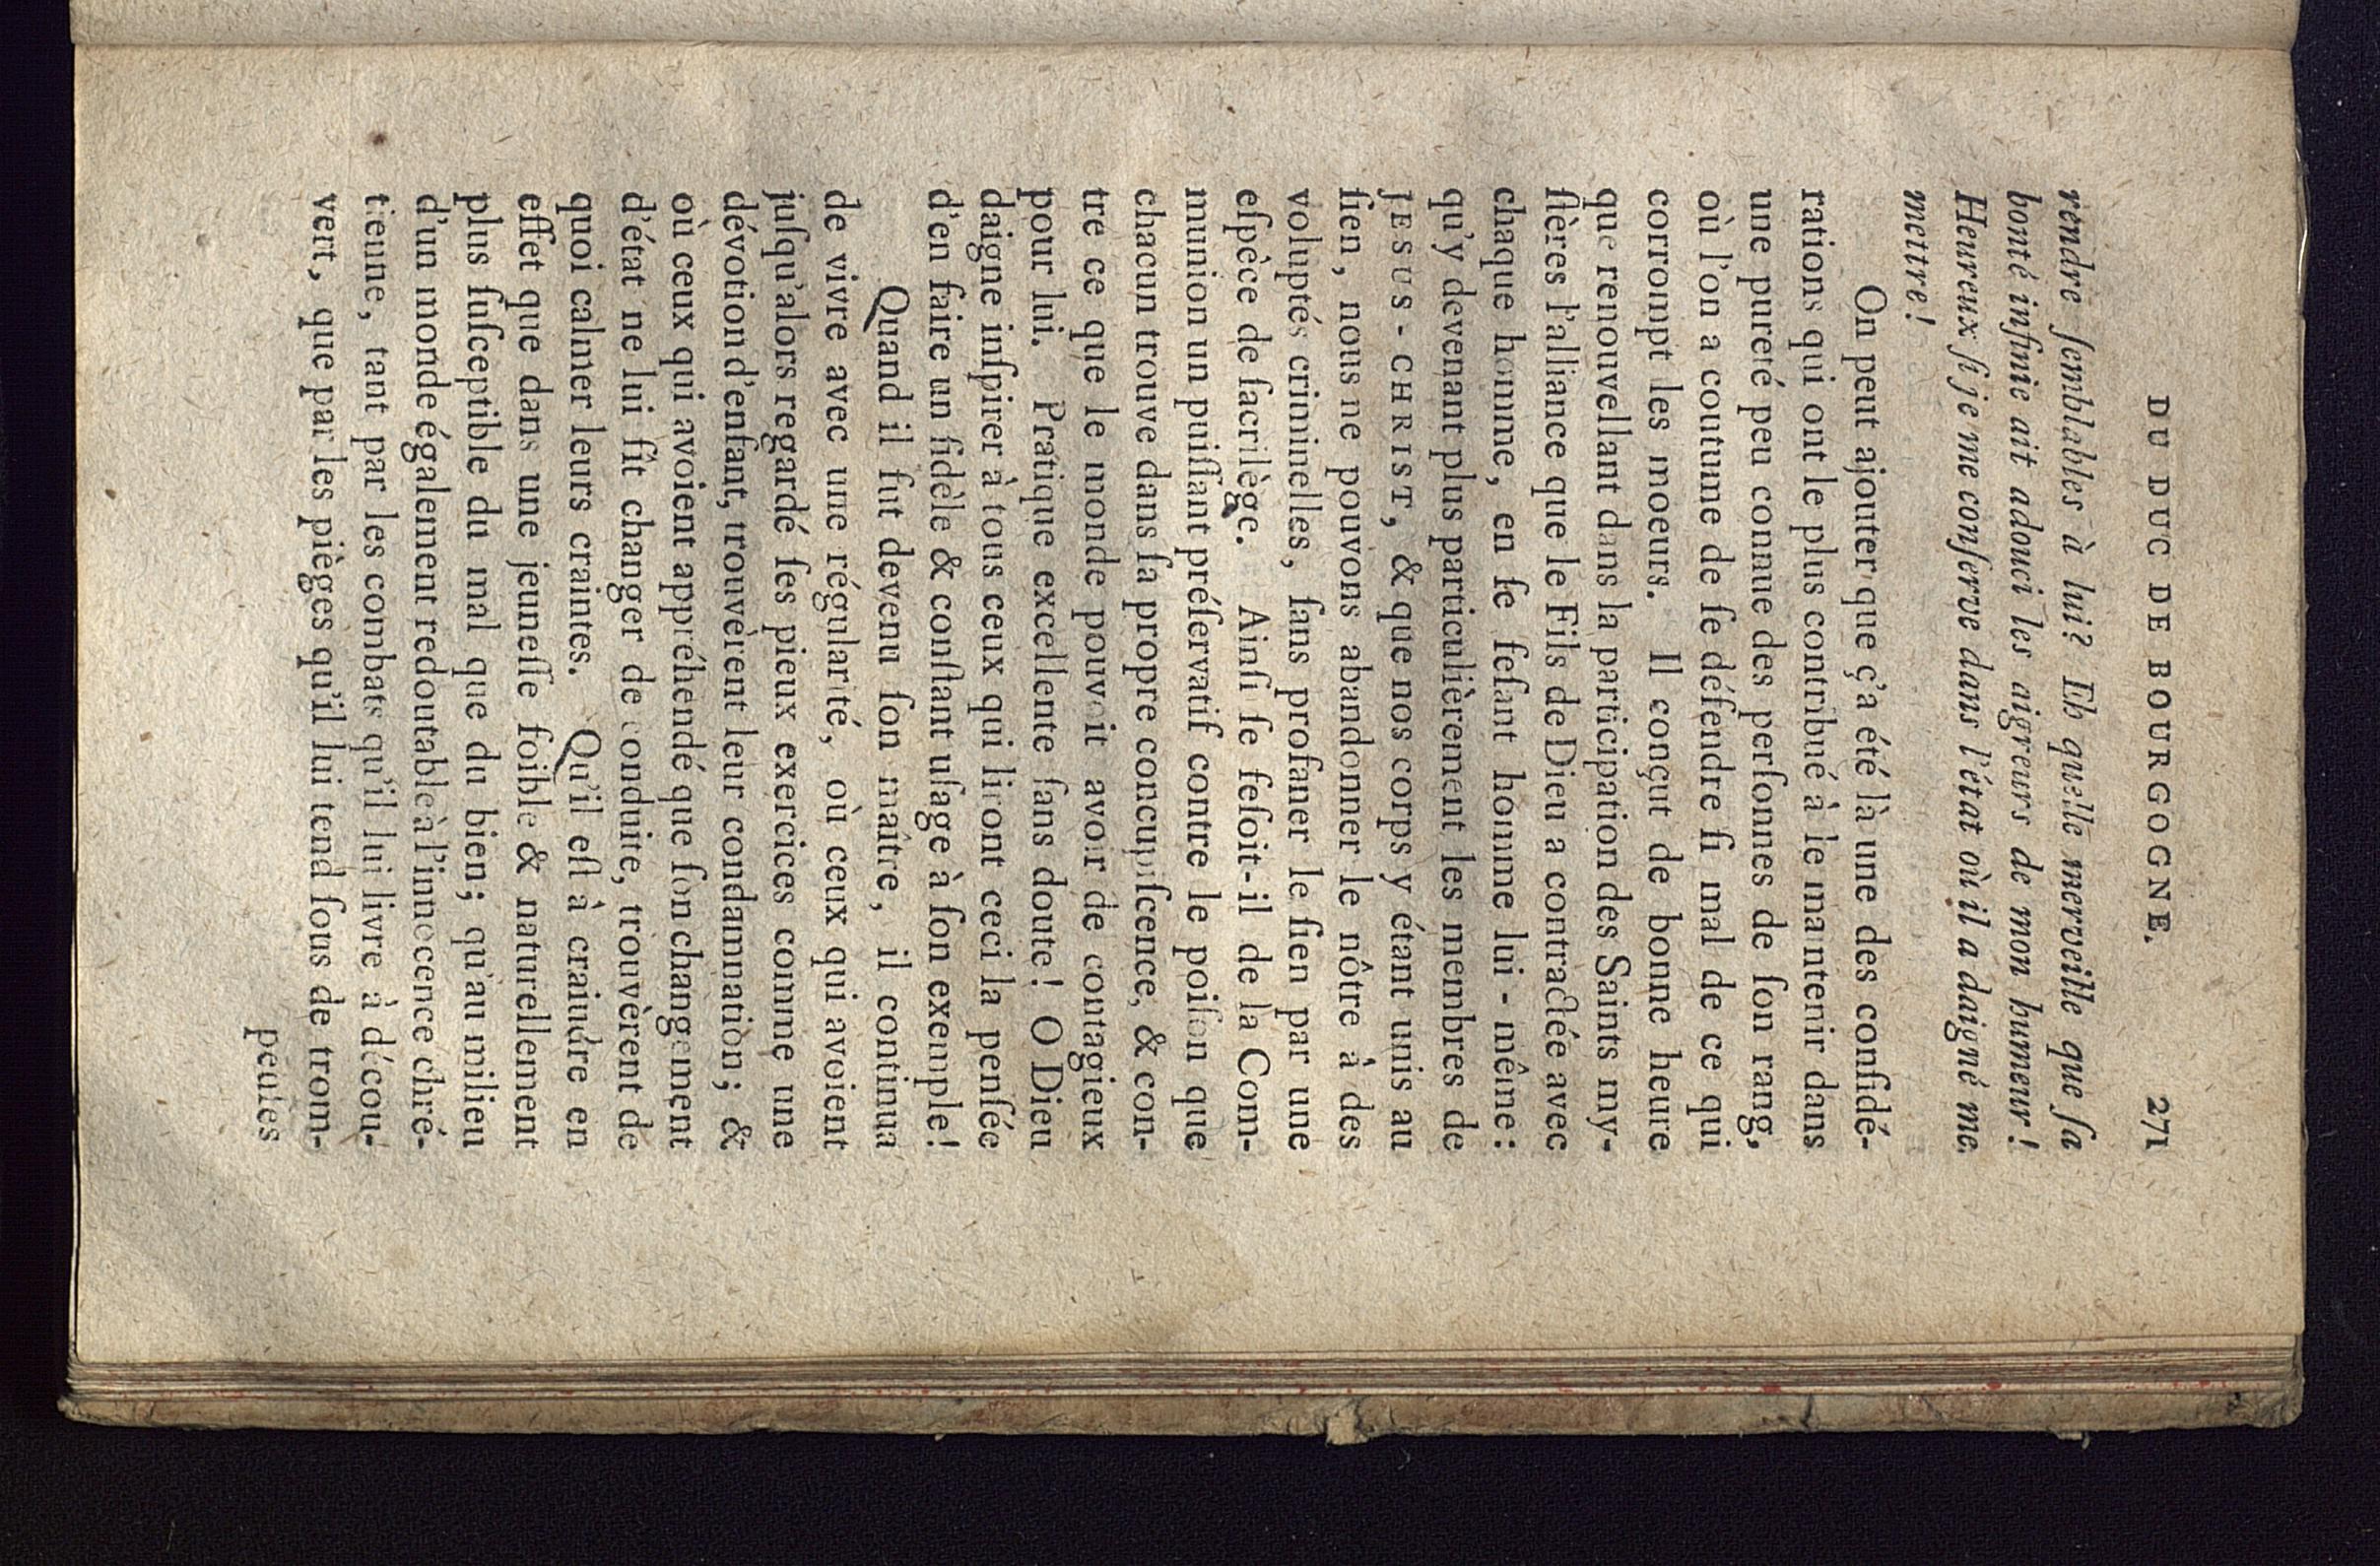 DU DUC DE BOURGOGNE. 271
rendre ſemblables à lui? Eh quelle merveille que ſa
bonté infinie ait adouci les aigreurs de mon humeur!
Heureux ſi je me conſerve dans l'état où il a daigné me
mettre!
On peut ajouter que ç'a été là une des conſidé-
rations qui ont le plus contribué à le maintenir dans
une pureté peu connue des perſonnes de ſon rang,
où l'on a coutume de ſe défendre ſi mal de ce qui
corrompt les moeurs. Il conçut de bonne heure
que renouvellant dans la participation des Saints my-
ſtères l'alliance que le Fils de Dieu a contractée avec
chaque homme, en ſe feſant homme lui-même:
qu'y devenant plus particulièrement les membres de
JESUS-CHRIST, & que nos corps y étant unis au
ſien, nous ne pouvons abandonner le nôtre à des
voluptés criminelles, ſans profaner le ſien par une
eſpèce de ſacrilège. Ainſi ſe feſoit-il de la Com-
munion un puiſſant préſervatif contre le poiſon que
chacun trouve dans ſa propre concupiſcence, & con-
tre ce que le monde pouvoit avoir de contagieux
pour lui. Pratique excellente ſans doute! O Dieu
daigne inſpirer à tous ceux qui liront ceci la penſée
d'en faire un fidèle & conſtant uſage à ſon exemple!
Quand il fut devenu ſon maître, il continua
de vivre avec une régularité, où ceux qui avoient
juſqu'alors regardé ſes pieux exercices comme une
dévotion d'enfant, trouvèrent leur condamnation; &
où ceux qui avoient appréhendé que ſon changement
d'état ne lui fît changer de conduite, trouvèrent de
quoi calmer leurs craintes. Qu'il eſt à craindre en
effet que dans une jeuneſſe foible & naturellement
plus ſuſceptible du mal que du bien; qu'au milieu
d'un monde également redoutable à l'innocence chré-
tienne, tant par les combats qu'il lui livre à décou-
vert, que par les pièges qu'il lui tend ſous de trom-
peuſes